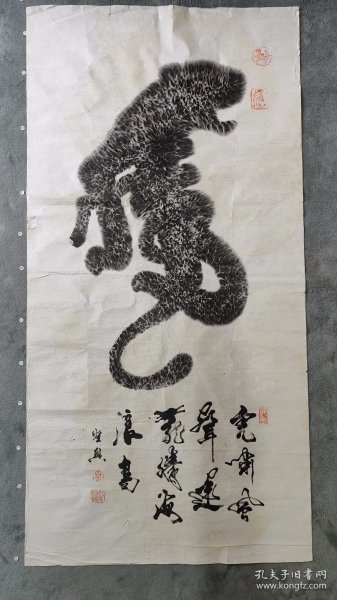 虎啸风
声远
龙腾海
浪高
孔夫子旧书网
www.kongfz.com